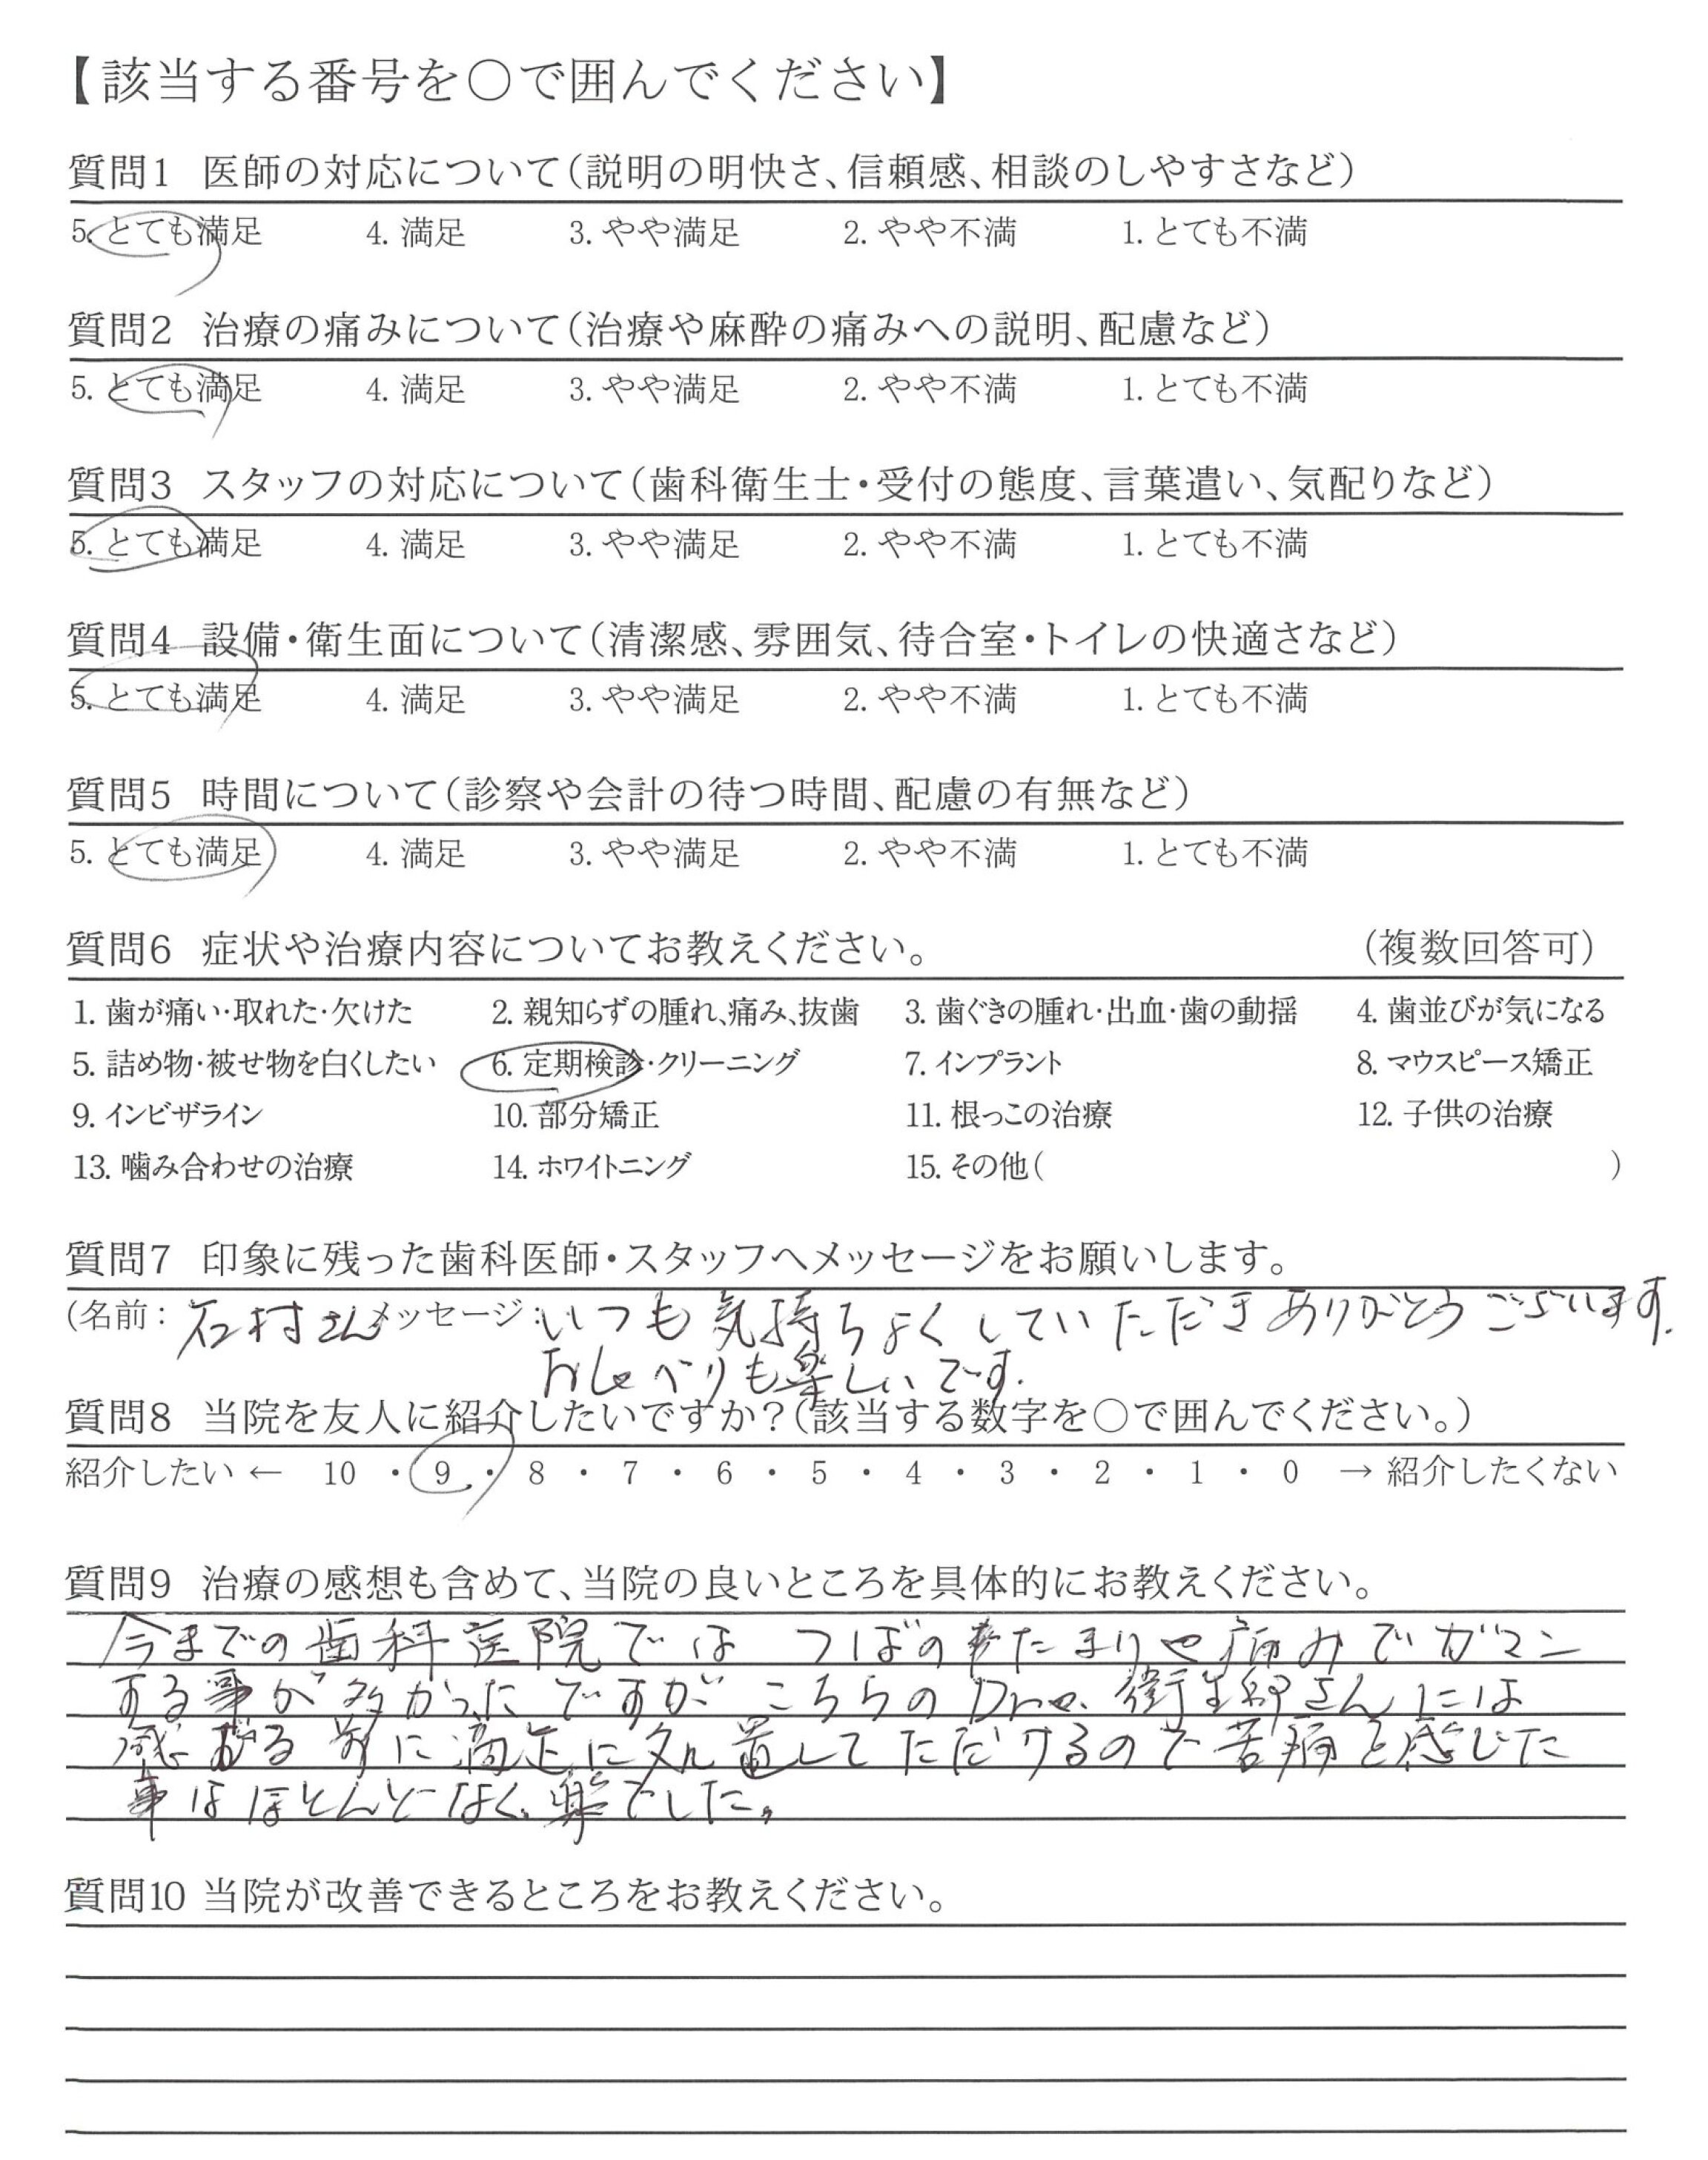 【該当する番号を○で囲んでください】
質問1 医師の対応について(説明の明快さ、信頼感、相談のしやすさなど)
5. とても満足 4. 満足 3. やや満足 2. やや不満 1. とても不満
質問2 治療の痛みについて(治療や麻酔の痛みへの説明、配慮など)
5. とても満足 4. 満足 3. やや満足 2. やや不満 1. とても不満
質問3 スタッフの対応について(歯科衛生士・受付の態度、言葉遣い、気配りなど)
5. とても満足 4. 満足 3. やや満足 2. やや不満 1. とても不満
質問4 設備・衛生面について(清潔感、雰囲気、待合室・トイレの快適さなど)
5. とても満足 4. 満足 3. やや満足 2. やや不満 1. とても不満
質問5 時間について(診察や会計の待つ時間、配慮の有無など)
5. とても満足 4. 満足 3. やや満足 2. やや不満 1. とても不満
質問6 症状や治療内容についてお教えください。 (複数回答可)
1. 歯が痛い・取れた・欠けた 2. 親知らずの腫れ、痛み、抜歯 3. 歯ぐきの腫れ・出血・歯の動揺 4. 歯並びが気になる
5. 詰め物・被せ物を白くしたい 6. 定期検診・クリーニング 7. インプラント 8. マウスピース矯正
9. インビザライン 10. 部分矯正 11. 根っこの治療 12. 子供の治療
13. 噛み合わせの治療 14. ホワイトニング 15. その他( )
質問7 印象に残った歯科医師・スタッフへメッセージをお願いします。
(名前: 石村さん メッセージ: いつも気持ちよくしていただきありがとうございます.
おしゃべりも楽しいです.
質問8 当院を友人に紹介したいですか?(該当する数字を○で囲んでください。)
紹介したい ← 10 ・ 9 ・ 8 ・ 7 ・ 6 ・ 5 ・ 4 ・ 3 ・ 2 ・ 1 ・ 0 → 紹介したくない
質問9 治療の感想も含めて、当院の良いところを具体的にお教えください。
今までの歯科医院では つばのたまりや痛みでガマン
する事が多かったですが こちらの 衛生師さんには
感じる前に 処置してただけるので苦痛と感じた
事はほとんどなく、楽でした。
質問10 当院が改善できるところをお教えください。